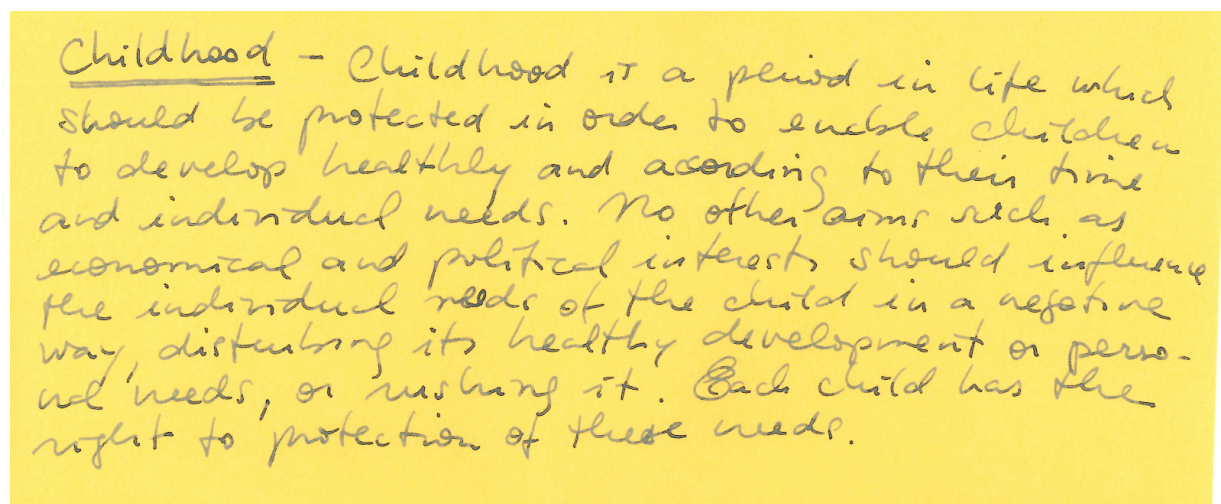 Childhood - Childhood is a period in life which
should be protected in order to enable children
to develop healthly and acording to their time
and individual needs. No other aims such as
economical and political interests should influence
the individual needs of the child in a negative
way, disturbing its healthy development or perso-
nal needs, or rushing it. Each child has the
right to protection of these needs.